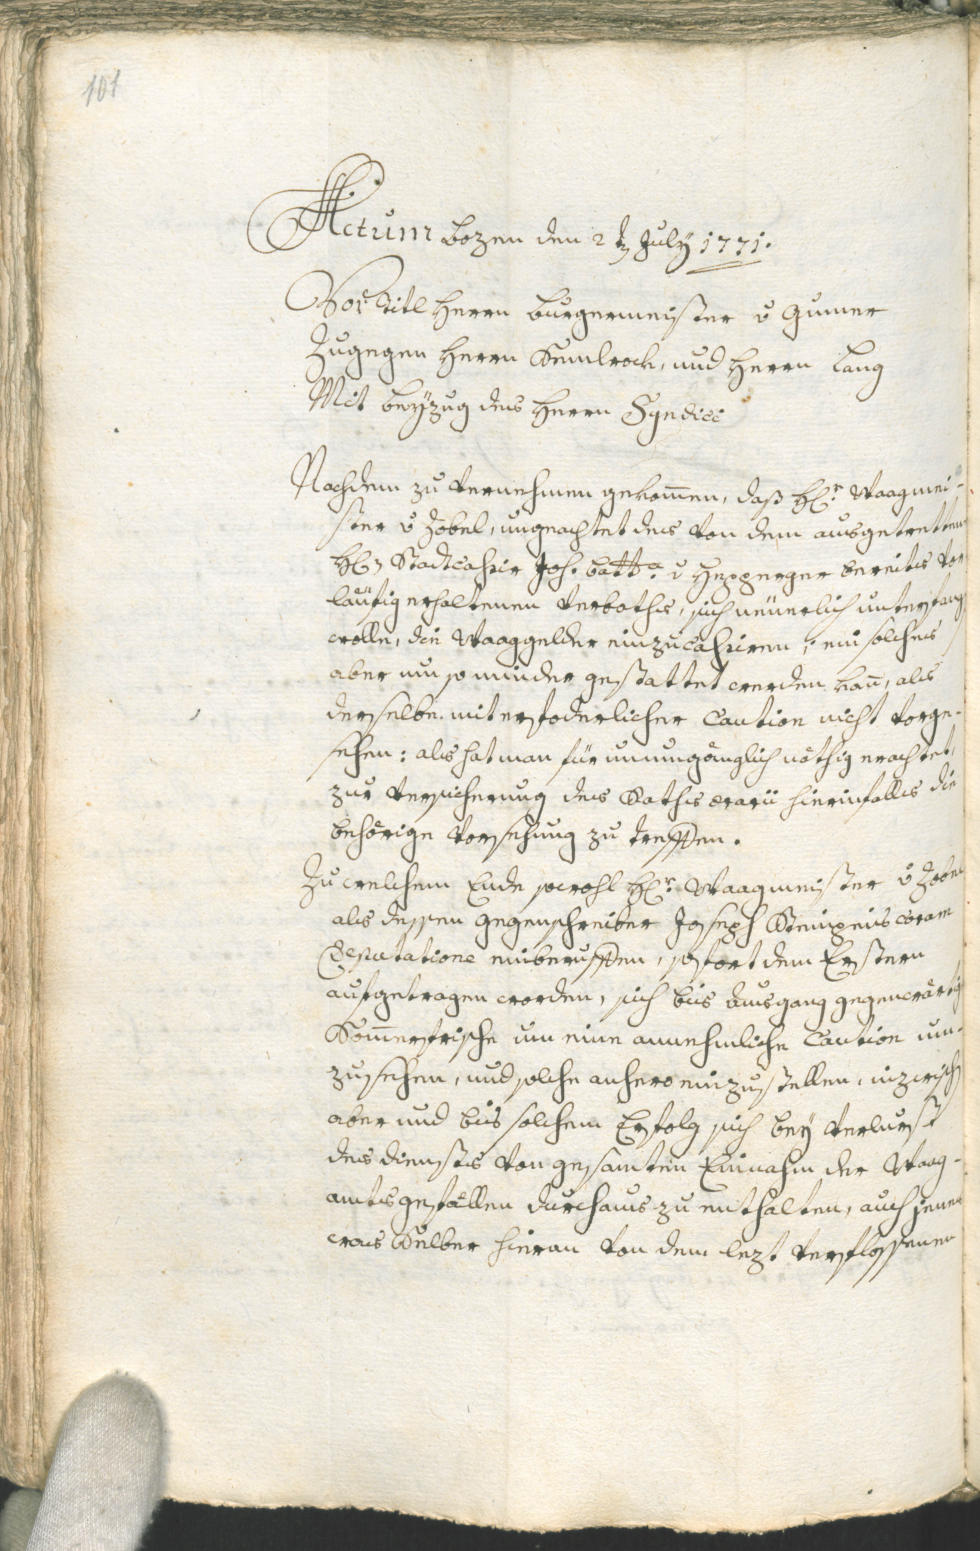 101
Actum Bozen den 2 t July 1771.
Vor Titl Herrn Burgermeister v Gumer
Zugegen Herrn Kemlrock, und Herrn Lang
Mit beyzug des Herrn Syndici
Nachdem zu vernehmen gekom̄en, daß H: Waagmei-
ster v Zobel, ungeachtet des von dem ausgetretten
H: Stadtcassir Joh. Batt:a v Hepperger bereits vor
läufig erhaltenen Verboths, sich neüerlich unterfang
wolle, die Waaggelder einzucassiren; ein solches
aber um so minder gestattet werden kan̄, als
derselbe mit erfoderlicher Caution nicht vorge-
sehen: als hat man für unumgänglich nöthig erachtet,
zur Versicherung des Raths ærarii hierinfalls die
behörige Vorsehung zu treffen.
Zu welchem Ende sowohl H: Waagmeister v Zobel
als dessen Gegenschreiber Joseph coram
Deputatione einberuffen, sofort dem Erstern
aufgetragen worden, sich bis Ausgang gegenwärtig
Som̄erfrische um eine annehmliche Caution um-
zusehen, und solche anhero einzustellen, inzwisch
aber und bis solchem Erfolg sich bey Verlurst
des Diensts von gesamten Einnahm der Waag-
amtsgefällen durchaus zu enthalten, auch jenes
was Selber hieran von dem lezt verflossenen